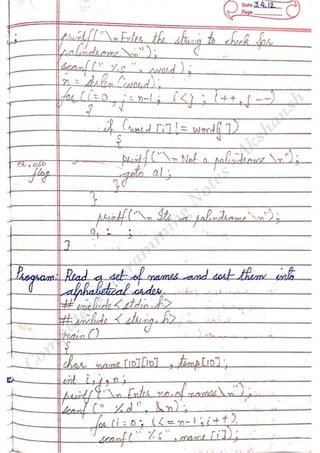 Date 3.4.12
Page
printf("\n Enter the string to check for
palindrome \n");
scanf("%s", word);
n = strlen(word);
for(i=0, j=n-1; i<j; i++, j--)
{
if (word[i]!= word[j])
{
printf("\n Not a palindrome \n");
or, use goto a1;
flag }
}
printf("\n Its a palindrome \n");
a1: ;
}
Program: Read a set of names and sort them into
alphabetical order.
# include < stdio.h>
# include < string.h>
main()
{
char name[10][10], temp[10];
int i,j,n;
printf("\n Enter no. of names \n");
scanf("%d", &n);
for(i=0; i<=n-1; i++)
scanf("%s", name[i]);
Programming Notes Akshansh